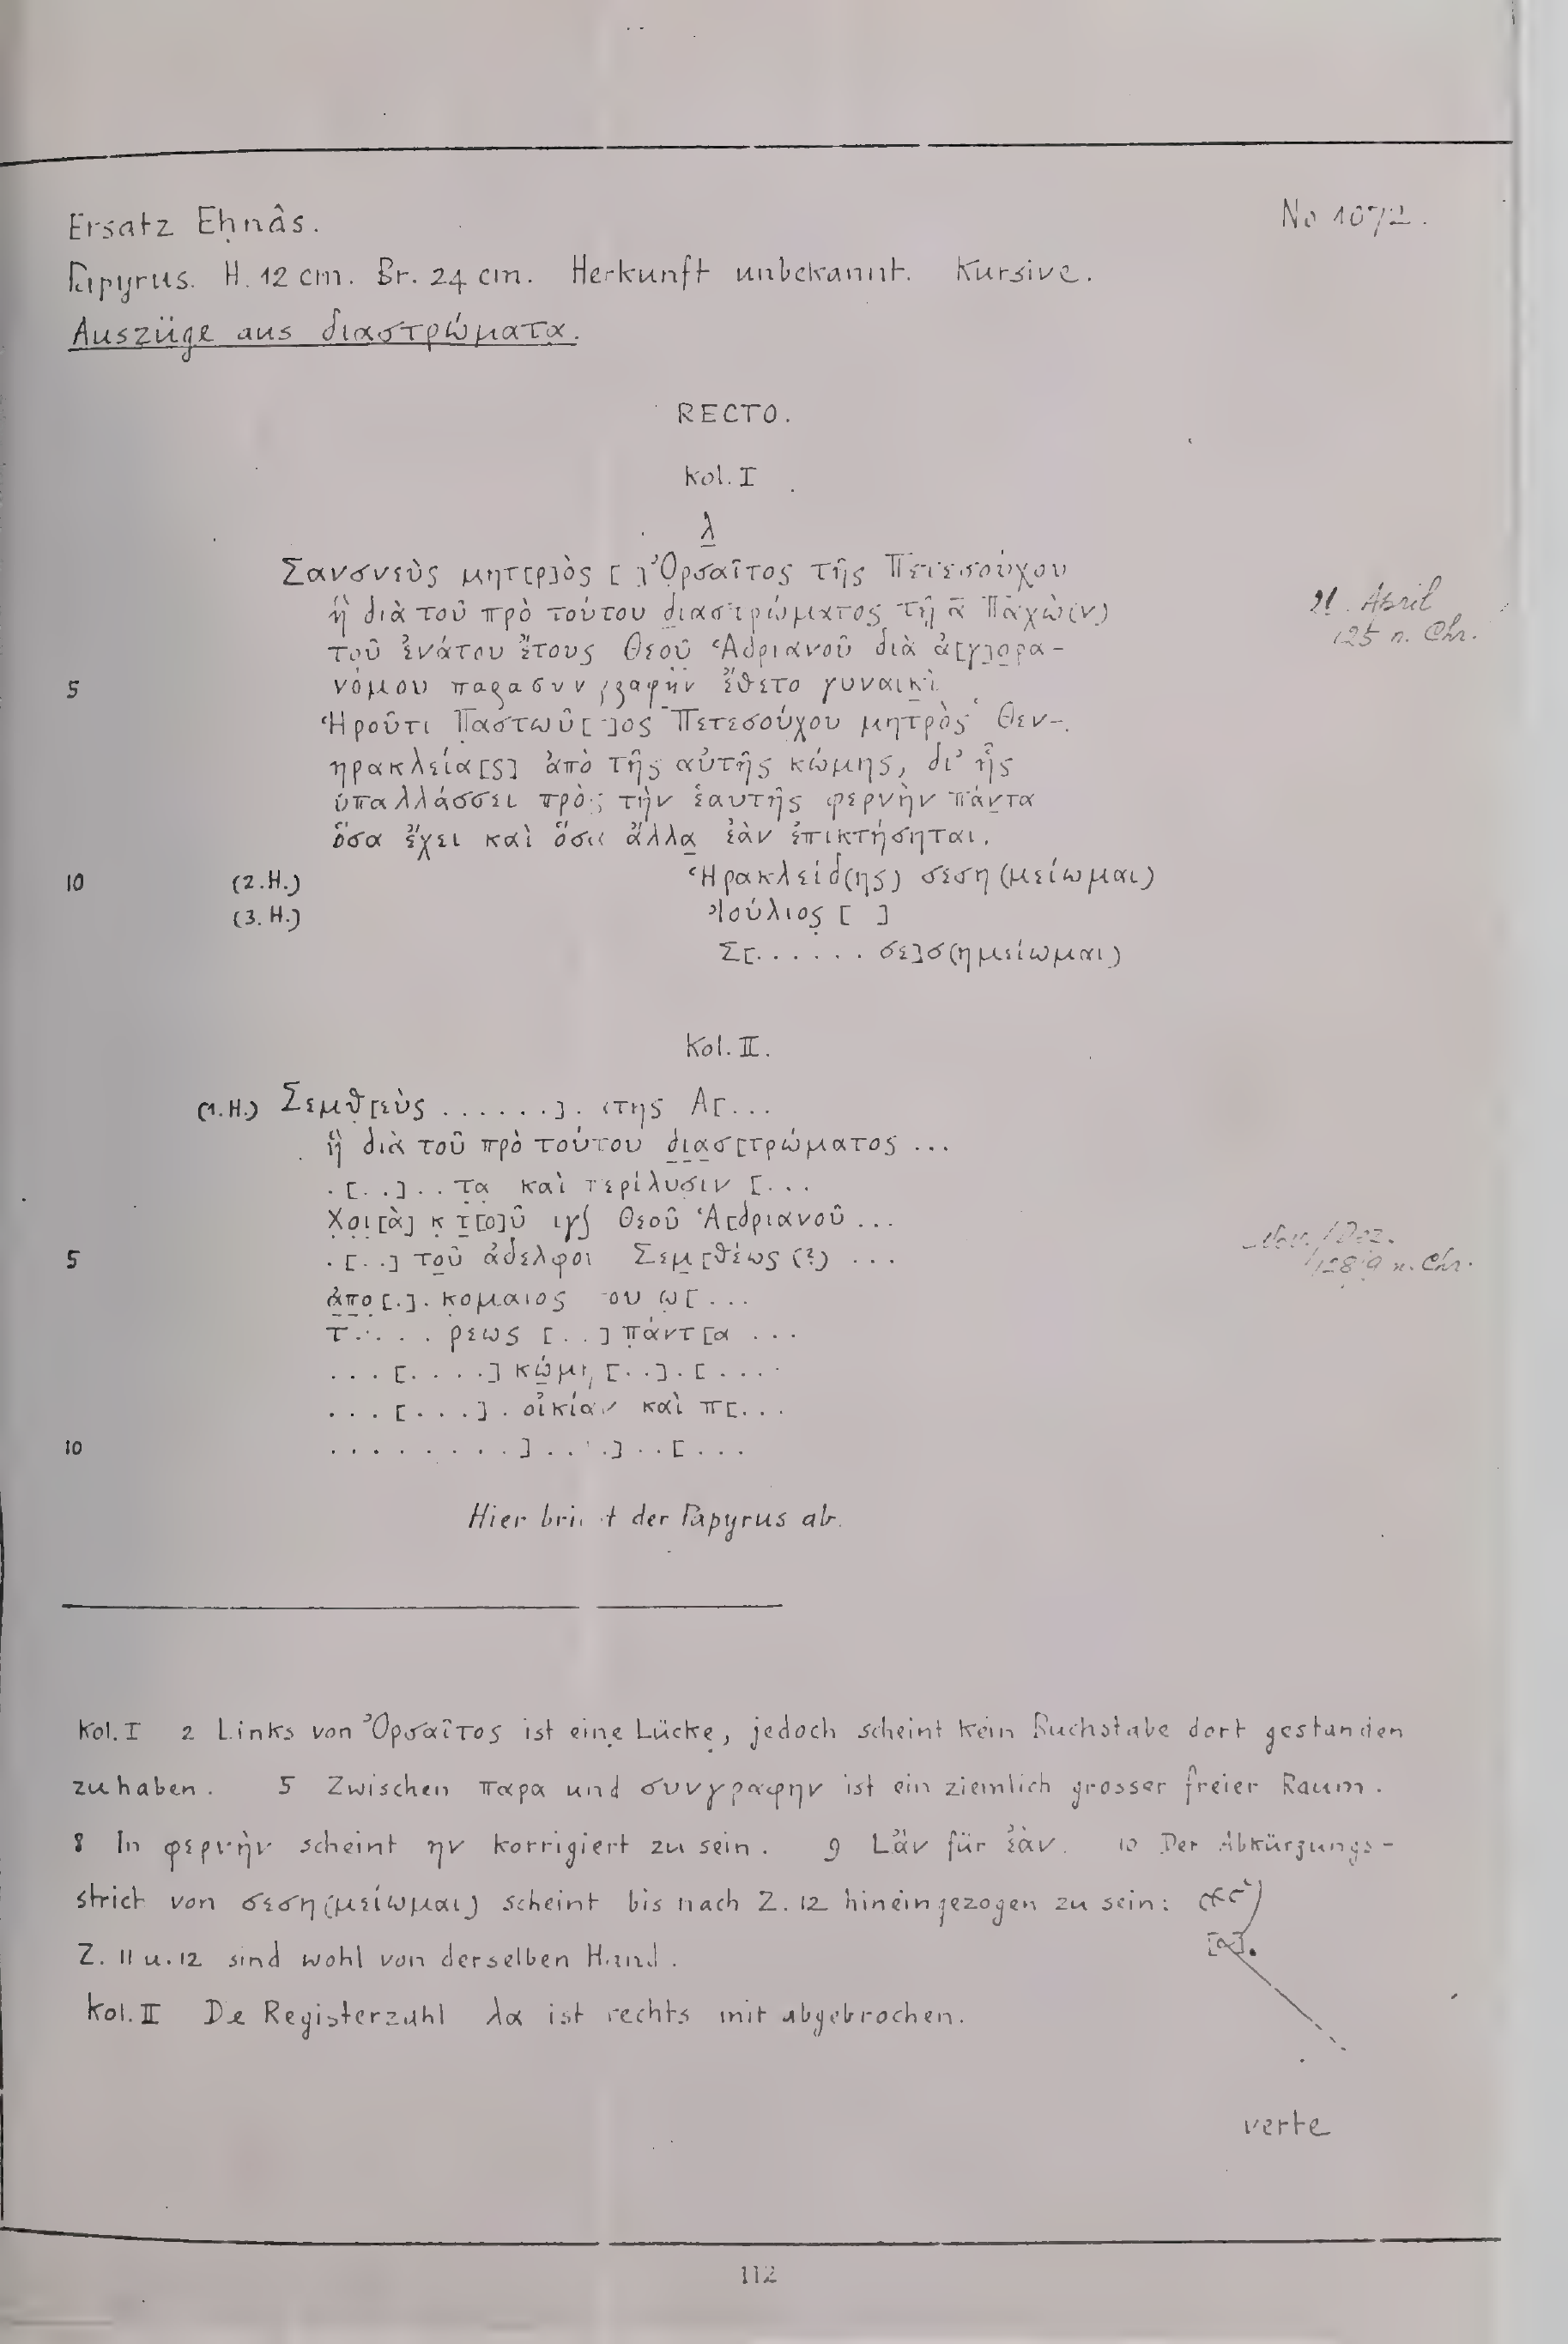 Ersatz Eḥnâs. No 1072.
Papyrus. H. 12 cm. Br. 24 cm. Herkunft unbekannt. Kursive.
Auszüge aus διαστρώματα.
RECTO.
Kol. I
λ
Σανσνεὺς μητ[ρ]ὸς [ ] Ὀρσαῖτος τῆς Πετεσούχου
ἣ διὰ τοῦ πρὸ τούτου διαστρώματος τῇ ᾱ Παχὼ(ν)
τοῦ ἐνάτου ἔτους Θεοῦ Ἁδριανοῦ διὰ ἀ[γ]ορα-
5 νόμου παρασυνγραφὴν ἔθετο γυναικὶ
Ἡροῦτι Παστωῦ[.]ος Πετεσούχου μητρὸς Θεν-
ηρακλεία[ς] ἀπὸ τῆς αὐτῆς κώμης, δι' ἧς
ὑπαλλάσσει πρὸς τὴν ἑαυτῆς φερνὴν πάντα
ὅσα ἔχει καὶ ὅσα ἄλλα ἐὰν ἐπικτήσηται.
10 (2. H.) Ἡρακλείδ(ης) σεση(μείωμαι)
(3. H.) Ἰούλιος [ ]
Σ[...... σε]σ(ημείωμαι)
21. April
125 n. Chr.
Kol. II.
(1. H.) Σεμθ[εὺς ......]. της Α[...
ἣ διὰ τοῦ πρὸ τούτου διασ[τρώματος ...
.[..]..τα καὶ περίλυσιν [...
Χοι[ὰ]κ τ[ο]ῦ ιγ∫ Θεοῦ Ἁ[δριανοῦ ...
5 .[..] τοῦ ἀδελφοῦ Σεμ[θέως (?) ...
ἀπο[.]. κομαιος ου ω[...
τ.... ρεως [..] πάντ[α ...
...[....] κώμη[..].[....
...[...]. οἰκίαν καὶ π[...
10 .........]....]..[...
Nov./Dez.
128/9 n. Chr.
Hier bricht der Papyrus ab.
Kol. I 2 Links von Ὀρσαῖτος ist eine Lücke, jedoch scheint kein Buchstabe dort gestanden
zu haben. 5 Zwischen παρα und συνγραφην ist ein ziemlich grosser freier Raum.
8 In φερνὴν scheint ην korrigiert zu sein. 9 ἂν für ἐὰν. 10 Der Abkürzungs-
strich von σεση(μείωμαι) scheint bis nach Z. 12 hineingezogen zu sein:
Z. 11 u. 12 sind wohl von derselben Hand.
Kol. II Die Registerzahl λα ist rechts mit abgebrochen.
verte
112